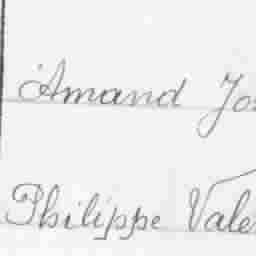 Amand Jos
Philippe Vale